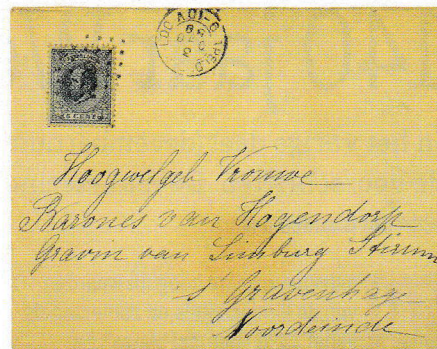 5 CENT
Hoogwelgeb Vrouwe
Barones van Hogendorp
Gravin van Limburg Stirum
s' Gravenhage
Noordeinde